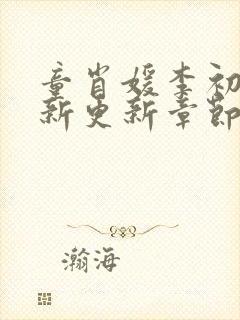 童肖媛李初
新更新章节
瀚海